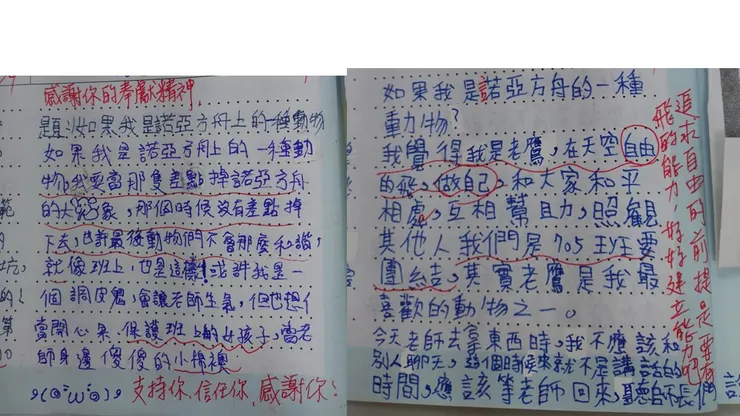 感謝你的奉獻精神,
題:如果我是諾亞方舟上的一種動物
如果我是諾亞方舟上的一種動
物,我要當那隻差點掉諾亞方舟
的大象,那個時候沒有差點掉
下去,也許最後動物們不會那麼和諧,
就像班上,也是這樣!或許我是一
個調皮鬼,會讓老師生氣,但也想
當開心果,保護班上的女孩子,當老
師身邊傻傻的小棉襖
支持你,信任你,感謝你!
如果我是諾亞方舟的一種
動物?
我覺得我是老鷹,在天空自由
的飛,做自己,和大家和平
相處,互相幫助,照觀
其他人我們是705班班要
團結,其實老鷹是我最
喜歡的動物之一。
今天老師去拿東西時,我不應該和
別人聊天,這個時候本就不是講話的
時間,應該等老師回來,聽師長們
追求自由的前提是要有
飛的能力,好好建立能力吧